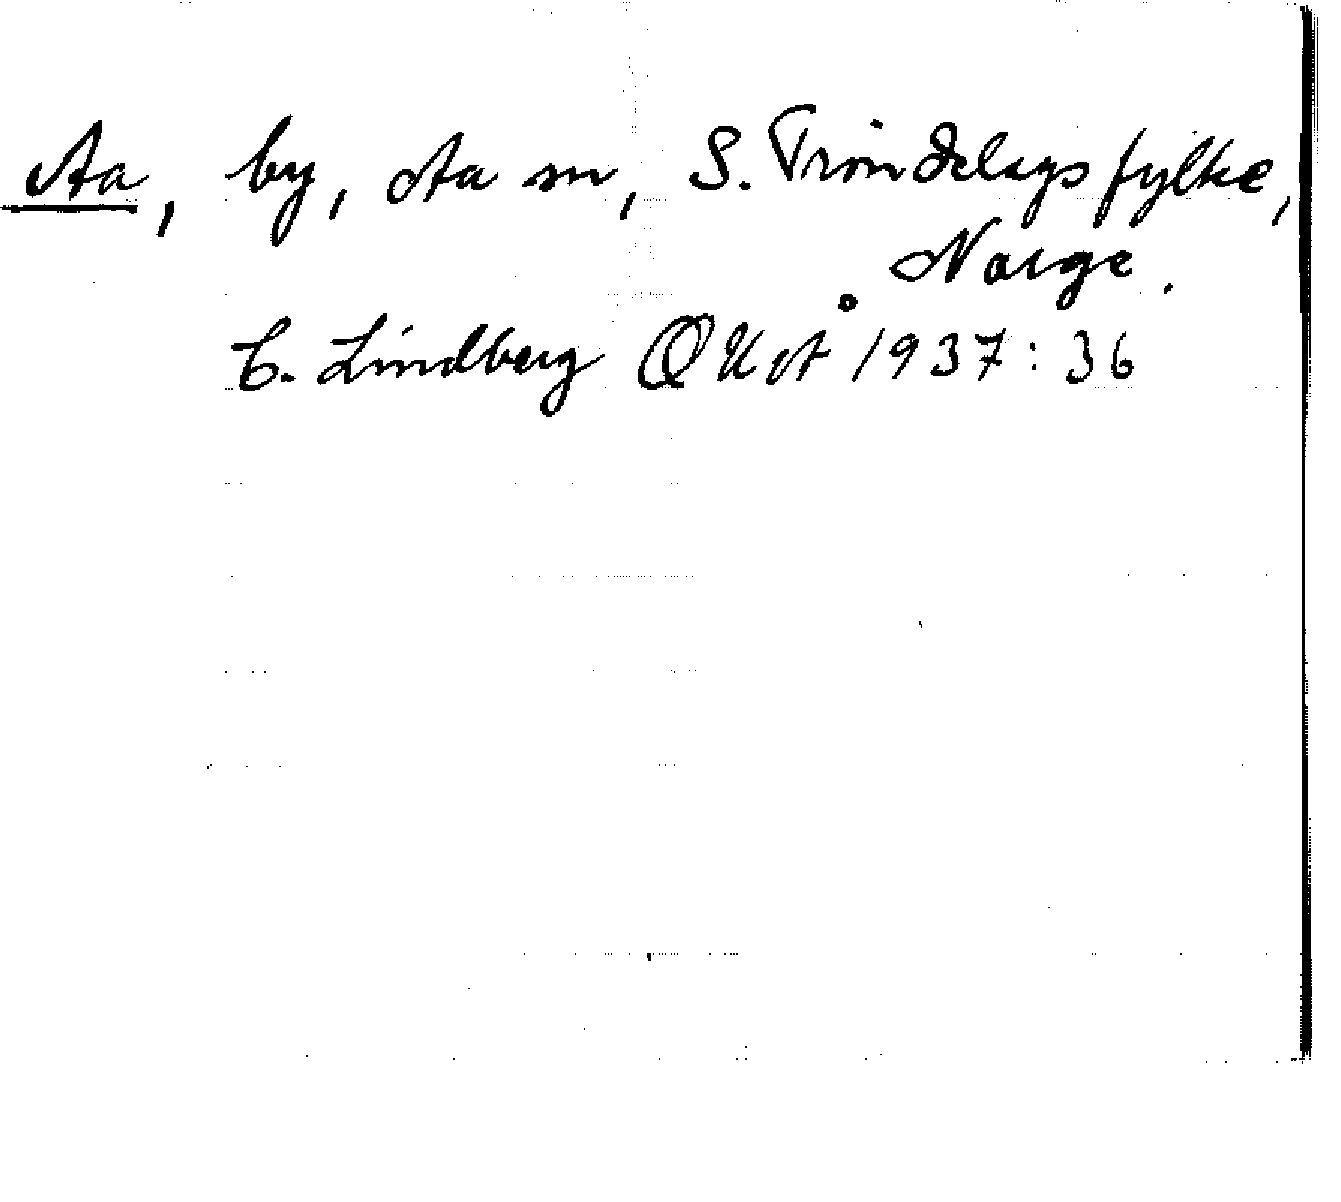 Aa, by, Aa sn, S. Tröndelags fylke,
Norge.
C. Lindberg OUÅ 1937: 36